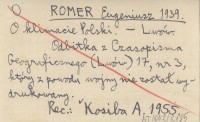 O ROMER Eugeniusz 1939.
O klimacie Polski. - Lwów.
Odbitka z Czasopisma
Geograficznego (Lwów) 17, nr 3,
który z powodu wojny nie został wy-
drukowany.
Rec.: Kosiba A. 1955